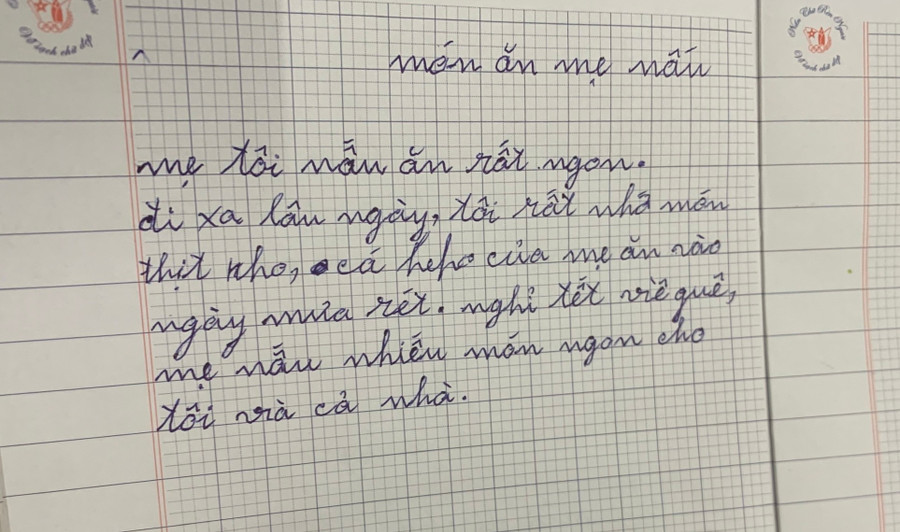 món ăn mẹ nấu
mẹ tôi nấu ăn rất ngon.
đi xa lâu ngày, tôi rất nhớ món
thịt kho, cá kho của mẹ ăn vào
ngày mưa rét. nghỉ tết về quê,
mẹ nấu nhiều món ngon cho
tôi và cả nhà.